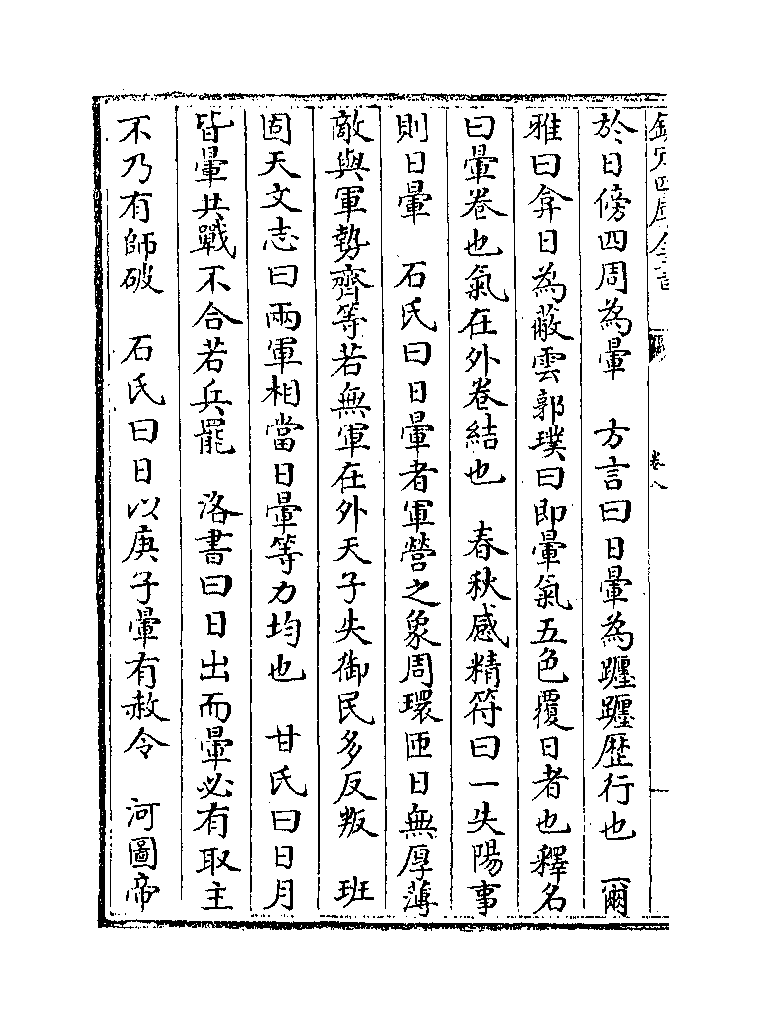 欽定四庫全書　卷八
於日傍四周為暈　方言曰日暈為躔躔歴行也　爾
雅曰弇日為蔽雲郭璞曰即暈氣五色覆日者也釋名
曰暈卷也氣在外卷結也　春秋感精符曰一失陽事
則日暈　石氏曰日暈者軍營之象周環匝日無厚薄
敵與軍勢齊等若無軍在外天子失御民多反叛　班
固天文志曰兩軍相當日暈等力均也　甘氏曰日月
皆暈共戰不合若兵罷　洛書曰日出而暈必有取主
不乃有師破　石氏曰日以庚子暈有赦令　河圖帝